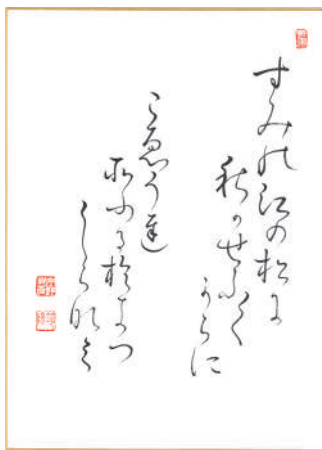 すみ能江の松を
秋かせふく
からに
こゑうち
所ふる於きつ
しら那み